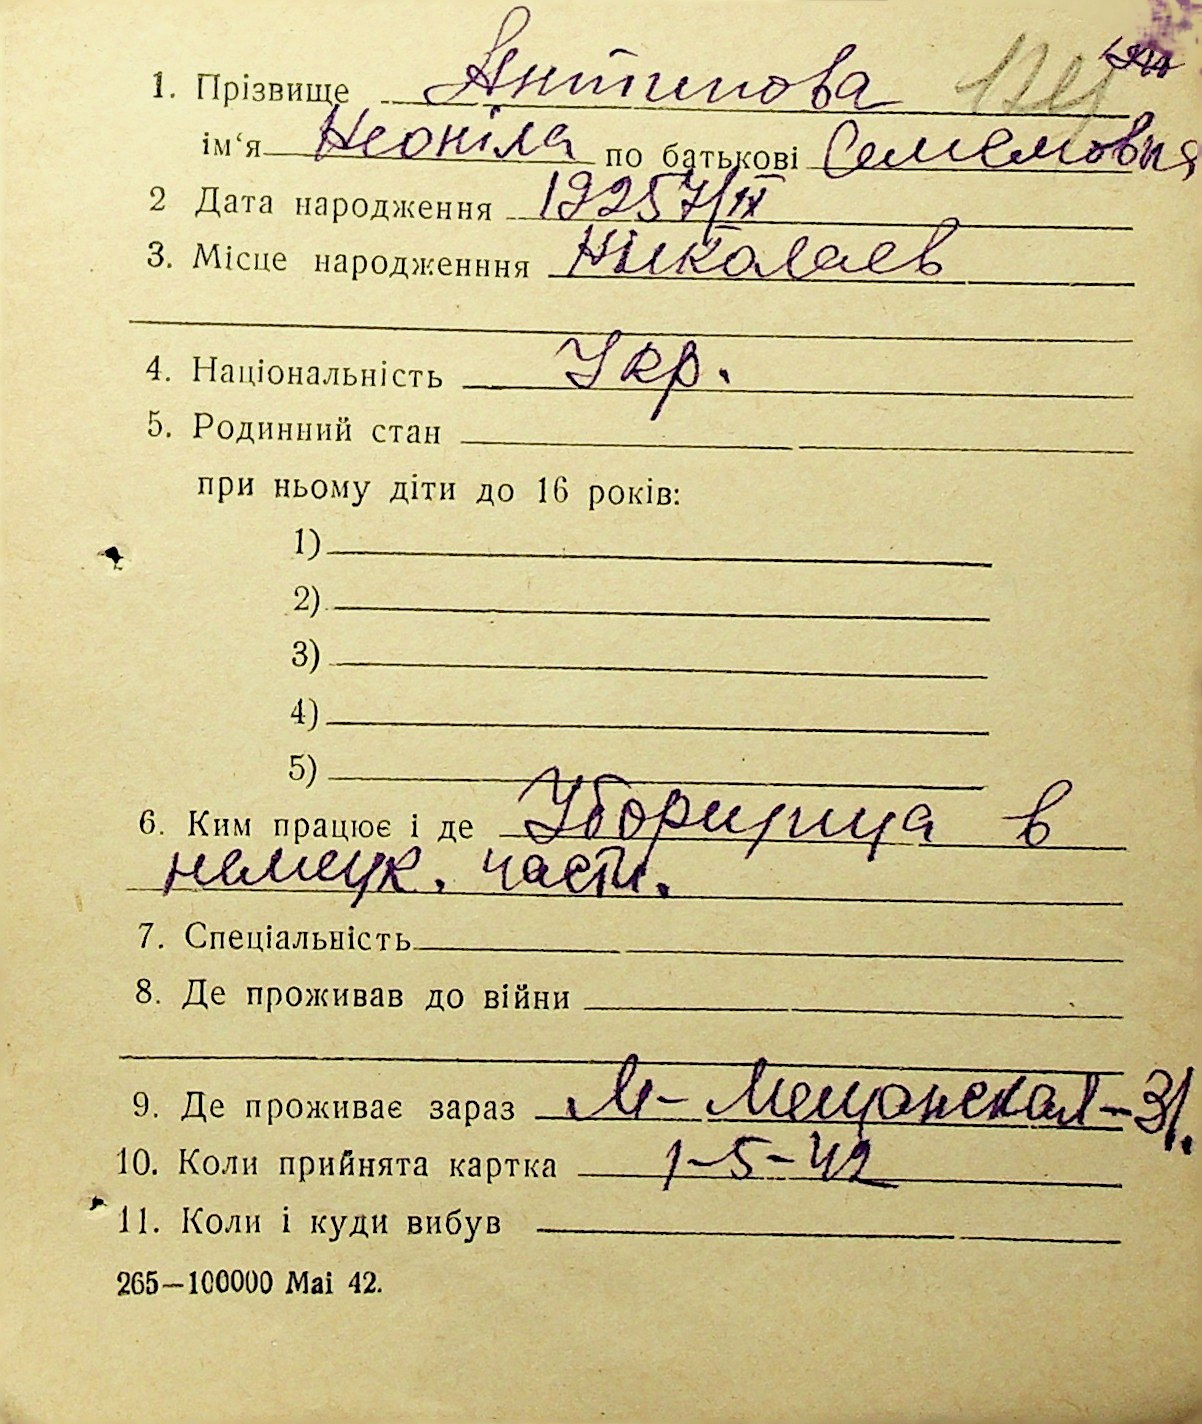 1. Прізвище Антипова
ім‘я Неоніла по батькові Семеновня
2 Дата народження 1925 7/IX
3. Місце народженння Николаев
4. Національність Укр.
5. Родинний стан
при ньому діти до 16 років:
1)
2)
3)
4)
5)
6. Ким працює і де Уборщица в
немецк. части.
7. Спеціальність
8. Де проживав до війни
9. Де проживає зараз М-Мещанская-31.
10. Коли прийнята картка 1-5-42
11. Коли і куди вибув
265—100000 Mai 42.